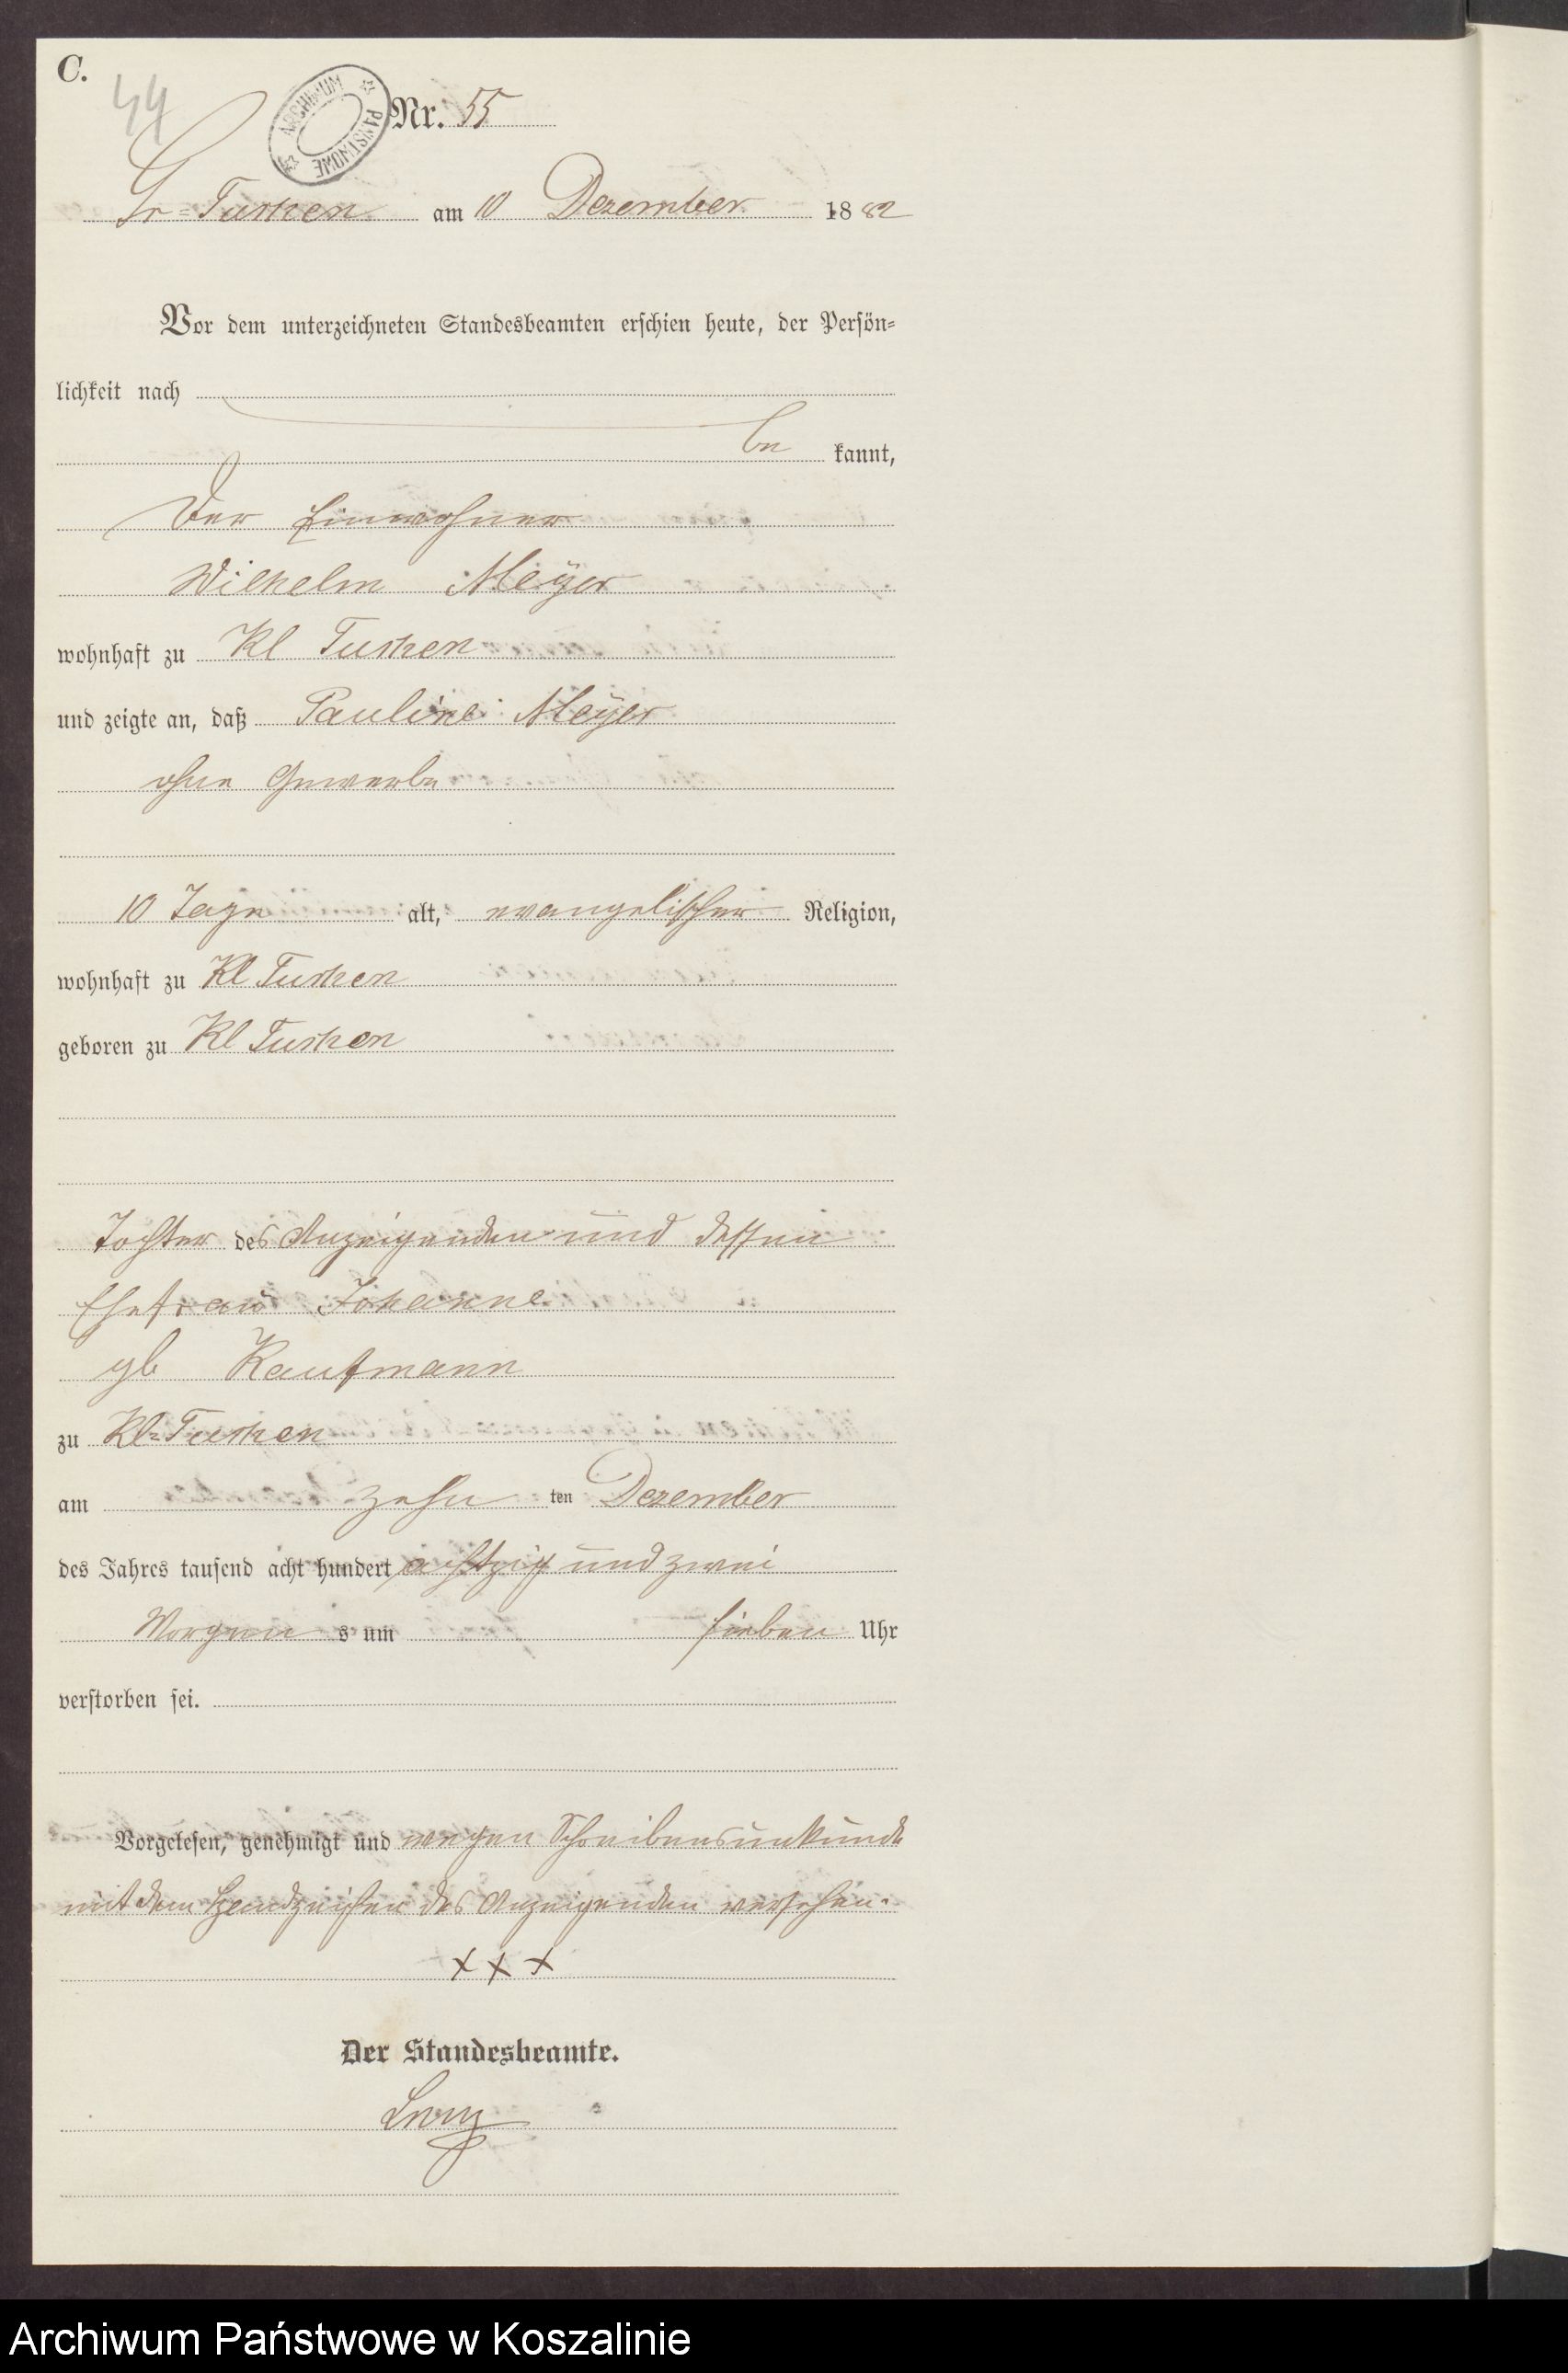 C.
44
ARCHIWUM PAŃSTWOWE
Nr. 55
Gr=Tuchen am 10 Dezember 1882
Vor dem unterzeichneten Standesbeamten erschien heute, der Persön=
lichkeit nach
be kannt,
der Einwohner
Wilhelm Meÿer
wohnhaft zu Kl Tuchen
und zeigte an, daß Pauline Meÿer
ohne Gewerbe
10 Tage alt, evangelischer Religion,
wohnhaft zu Kl Tuchen
geboren zu Kl Tuchen
Tochter des Anzeigenden und dessen
Ehefrau Johanne
gb Kaufmann
zu Kl=Tuchen
am zehn ten Dezember
des Jahres tausend acht hundert achtzig und zwei
Morgen s um sieben Uhr
verstorben sei.
Vorgelesen, genehmigt und wegen Schreibensunkunde
mit dem Handzeichen des Anzeigenden versehen.
x x x
Der Standesbeamte.
Archiwum Państwowe w Koszalinie